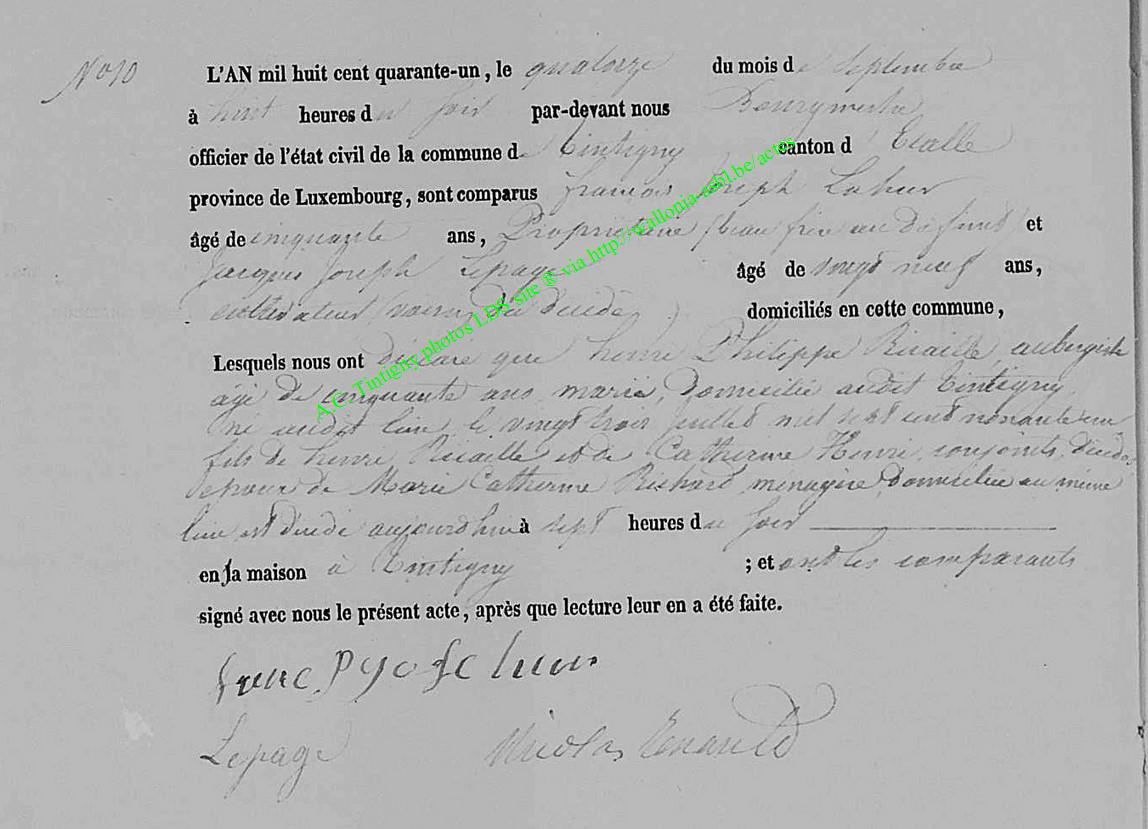 No 10
L'AN mil huit cent quarante-un, le quatorze du mois de Septembre
à huit heures du soir par-devant nous Bourgmestre
officier de l'état civil de la commune de Tintigny canton d'Etalle
province de Luxembourg, sont comparus françois Joseph
âgé de cinquante ans, Propriétaire (beau frère au défunt et
Jacques Joseph Lepage âgé de vingt neuf ans,
cultivateur (voisin du décédé ) domiciliés en cette commune,
Lesquels nous ont déclaré que henri Philippe aubergiste
âgé de cinquante ans marié, domicilié audit Tintigny
né audit lieu le vingt trois juillet mil sept cent nonante un
fils de henri et de Catherine Henri, conjoints, décédés
époux de Marie Catherine Richard, ménagère domiciliée au même
lieu est décédé aujourd'hui à sept heures du soir
en sa maison à Tintigny ; et ont les comparants
signé avec nous le présent acte, après que lecture leur en a été faite.
Lepage Nicolas
A.C. Tintigny photos LDS site ® via http://wallonia-asbl.be/actes